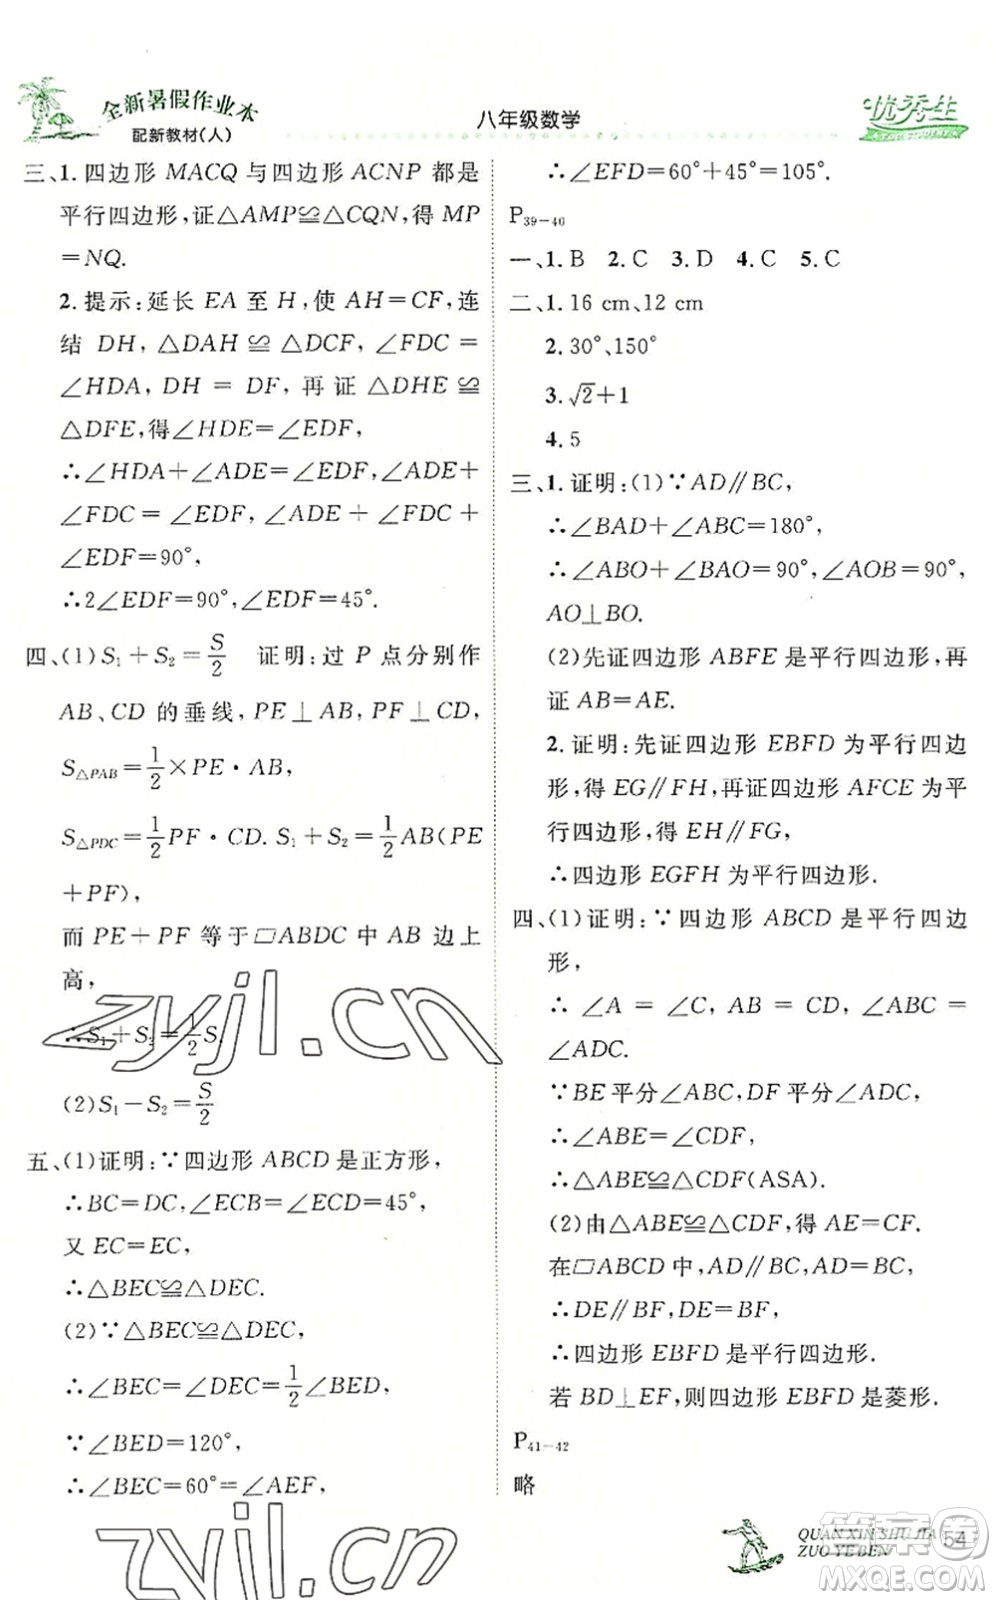 全新暑假作业本
配新教材(人)
八年级数学
优秀生
三、1.四边形 MACQ 与四边形 ACNP 都是
平行四边形,证△AMP≌△CQN,得 MP
=NQ.
2.提示:延长 EA 至 H,使 AH=CF,连
结 DH,△DAH ≌ △DCF,∠FDC =
∠HDA,DH = DF,再证△DHE ≌
△DFE,得∠HDE=∠EDF,
∴∠HDA+∠ADE=∠EDF,∠ADE+
∠FDC = ∠EDF,∠ADE + ∠FDC +
∠EDF=90°,
∴2∠EDF=90°,∠EDF=45°.
四、(1)S₁+S₂=S/2 证明:过 P 点分别作
AB、CD 的垂线,PE⊥AB,PF⊥CD,
S△PAB=1/2×PE·AB,
S△PDC=1/2PF·CD.S₁+S₂=1/2AB(PE
+PF),
而 PE+PF 等于▱ABDC 中 AB 边上
高,
∴S₁+S₂=1/2S.
(2)S₁-S₂=S/2
五、(1)证明:∵四边形 ABCD 是正方形,
∴BC=DC,∠ECB=∠ECD=45°,
又 EC=EC,
∴△BEC≌△DEC.
(2)∵△BEC≌△DEC,
∴∠BEC=∠DEC=1/2∠BED,
∵∠BED=120°,
∴∠BEC=60°=∠AEF,
∴∠EFD=60°+45°=105°.
P39-40
一、1.B 2.C 3.D 4.C 5.C
二、1.16 cm、12 cm
2.30°、150°
3.√2+1
4.5
三、1.证明:(1)∵AD∥BC,
∴∠BAD+∠ABC=180°,
∴∠ABO+∠BAO=90°,∠AOB=90°,
AO⊥BO.
(2)先证四边形 ABFE 是平行四边形,再
证 AB=AE.
2.证明:先证四边形 EBFD 为平行四边
形,得 EG∥FH,再证四边形 AFCE 为平
行四边形,得 EH∥FG,
∴四边形 EGFH 为平行四边形.
四、(1)证明:∵四边形 ABCD 是平行四边
形,
∴ ∠A = ∠C, AB = CD, ∠ABC =
∠ADC.
∵BE 平分∠ABC,DF 平分∠ADC,
∴∠ABE=∠CDF,
∴△ABE≌△CDF(ASA).
(2)由△ABE≌△CDF,得 AE=CF.
在▱ABCD 中,AD∥BC,AD=BC,
∴DE∥BF,DE=BF,
∴四边形 EBFD 是平行四边形.
若 BD⊥EF,则四边形 EBFD 是菱形.
P41-42
略
QUAN XIN SHU JIA
ZUO YE BEN
54
zyjl.cn
zyjl.cn
答案圈
MXQE.COM